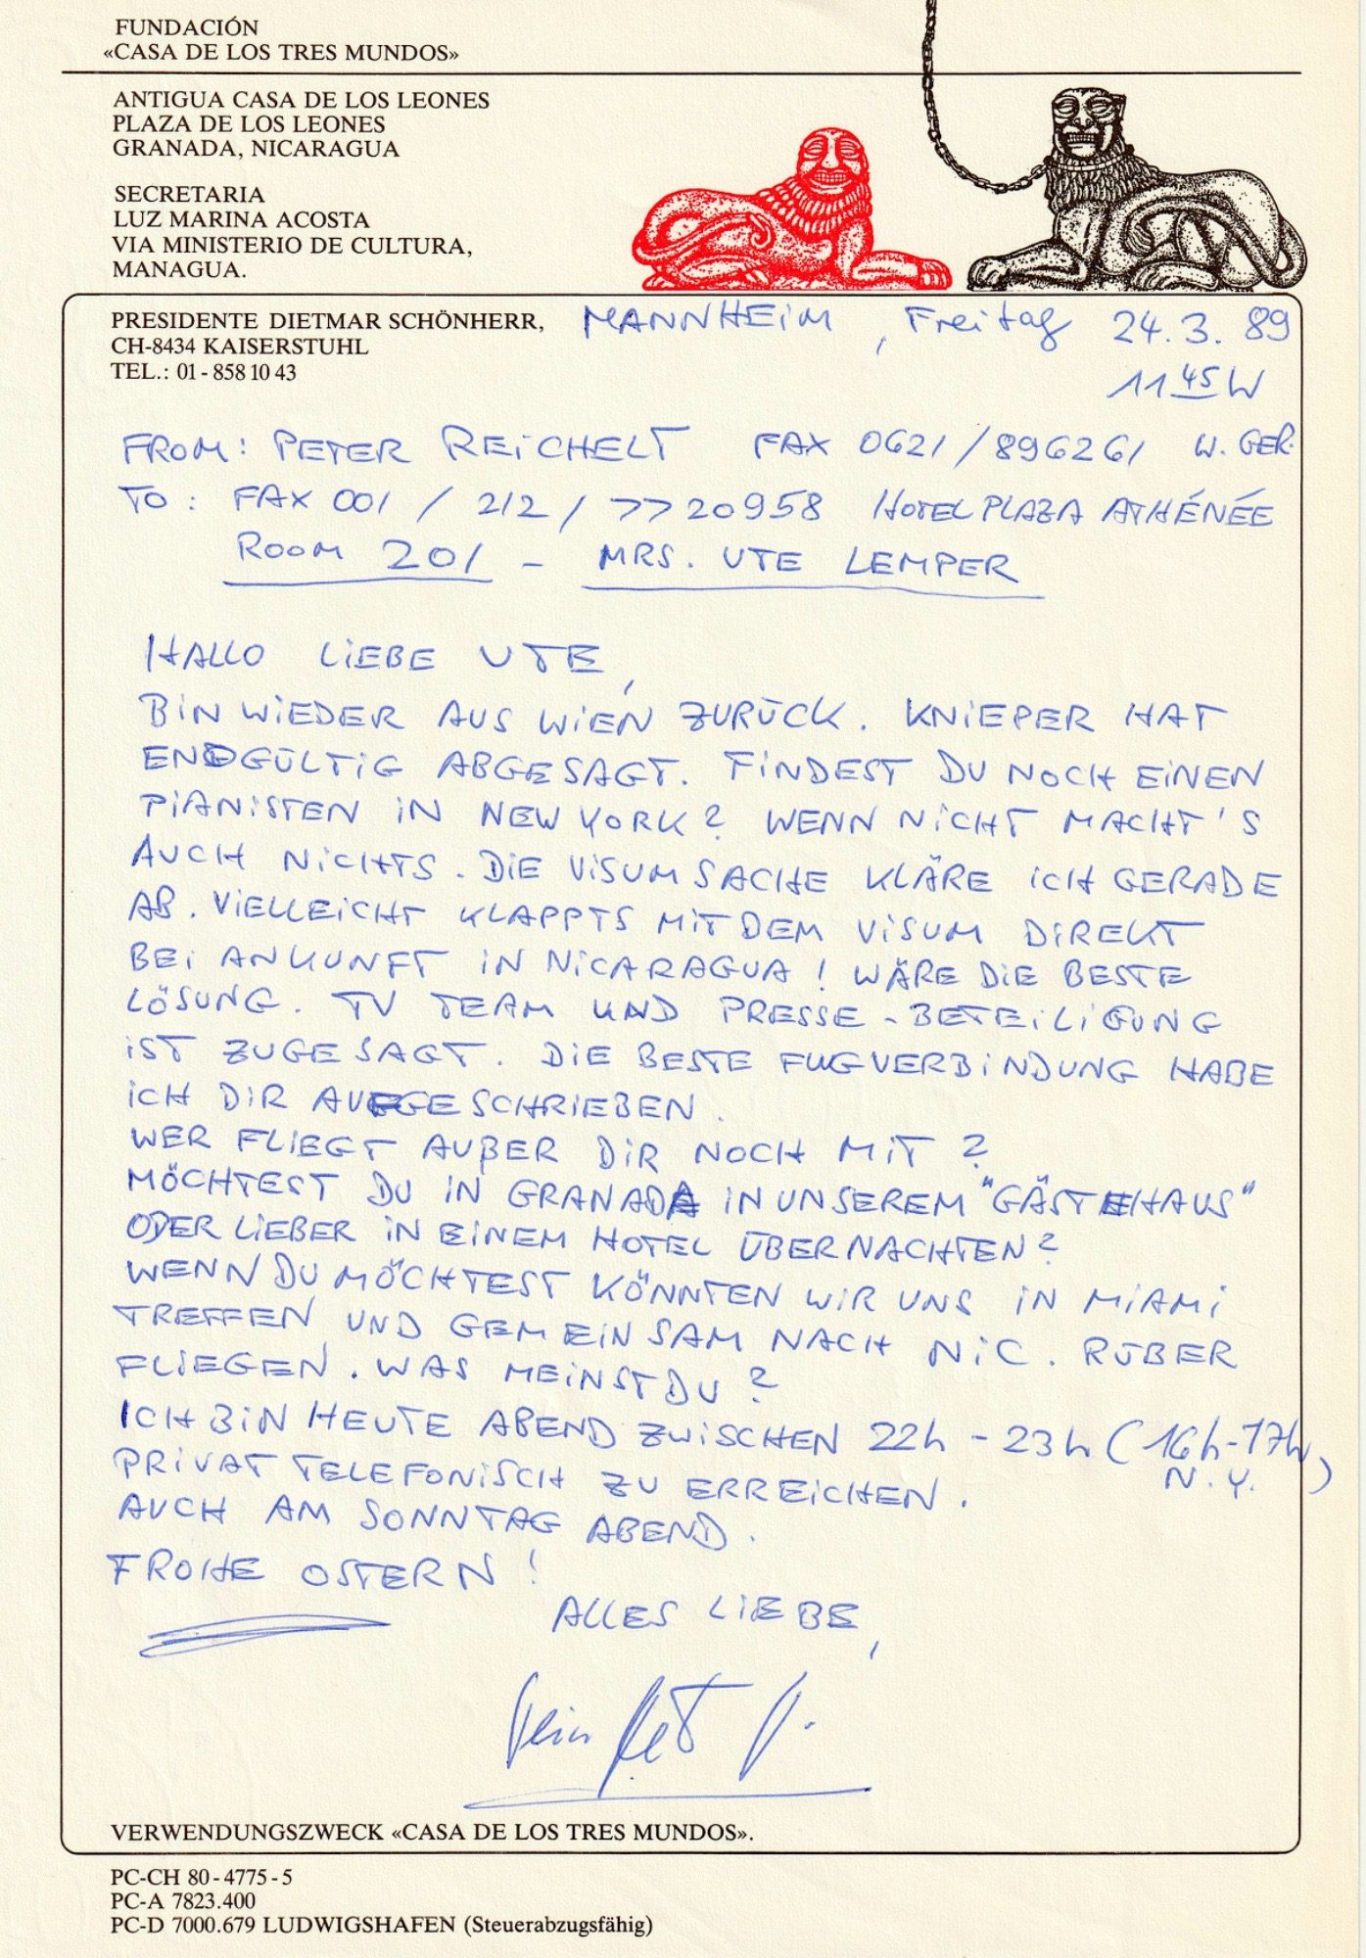 FUNDACIÓN
«CASA DE LOS TRES MUNDOS»
ANTIGUA CASA DE LOS LEONES
PLAZA DE LOS LEONES
GRANADA, NICARAGUA
SECRETARIA
LUZ MARINA ACOSTA
VIA MINISTERIO DE CULTURA,
MANAGUA.
PRESIDENTE DIETMAR SCHÖNHERR,
CH-8434 KAISERSTUHL
TEL.: 01-858 10 43
MANNHEIM, Freitag 24.3.89
11 45 W
FROM: PETER REICHELT FAX 0621/896261 W. GER.
TO: FAX 001 / 212 / 7720958 HOTEL PLAZA ATHÉNÉE
ROOM 201 - MRS. UTE LEMPER
HALLO LIEBE UTE,
BIN WIEDER AUS WIEN ZURÜCK. KNIEPER HAT
ENDGÜLTIG ABGESAGT. FINDEST DU NOCH EINEN
PIANISTEN IN NEW YORK? WENN NICHT MACHT'S
AUCH NICHTS. DIE VISUMSACHE KLÄRE ICH GERADE
AB. VIELLEICHT KLAPPTS MIT DEM VISUM DIREKT
BEI ANKUNFT IN NICARAGUA! WÄRE DIE BESTE
LÖSUNG. TV TEAM UND PRESSE-BETEILIGUNG
IST ZUGESAGT. DIE BESTE FUGVERBINDUNG HABE
ICH DIR AUFGESCHRIEBEN.
WER FLIEGT AUßER DIR NOCH MIT?
MÖCHTEST DU IN GRANADA IN UNSEREM "GÄSTEHAUS"
ODER LIEBER IN EINEM HOTEL ÜBERNACHTEN?
WENN DU MÖCHTEST KÖNNTEN WIR UNS IN MIAMI
TREFFEN UND GEMEINSAM NACH NIC. RÜBER
FLIEGEN. WAS MEINST DU?
ICH BIN HEUTE ABEND ZWISCHEN 22h - 23h (16h-17h
PRIVAT TELEFONISCH ZU ERREICHEN. N.Y.)
AUCH AM SONNTAG ABEND.
FROHE OSTERN!
ALLES LIEBE,
VERWENDUNGSZWECK «CASA DE LOS TRES MUNDOS».
PC-CH 80-4775-5
PC-A 7823.400
PC-D 7000.679 LUDWIGSHAFEN (Steuerabzugsfähig)